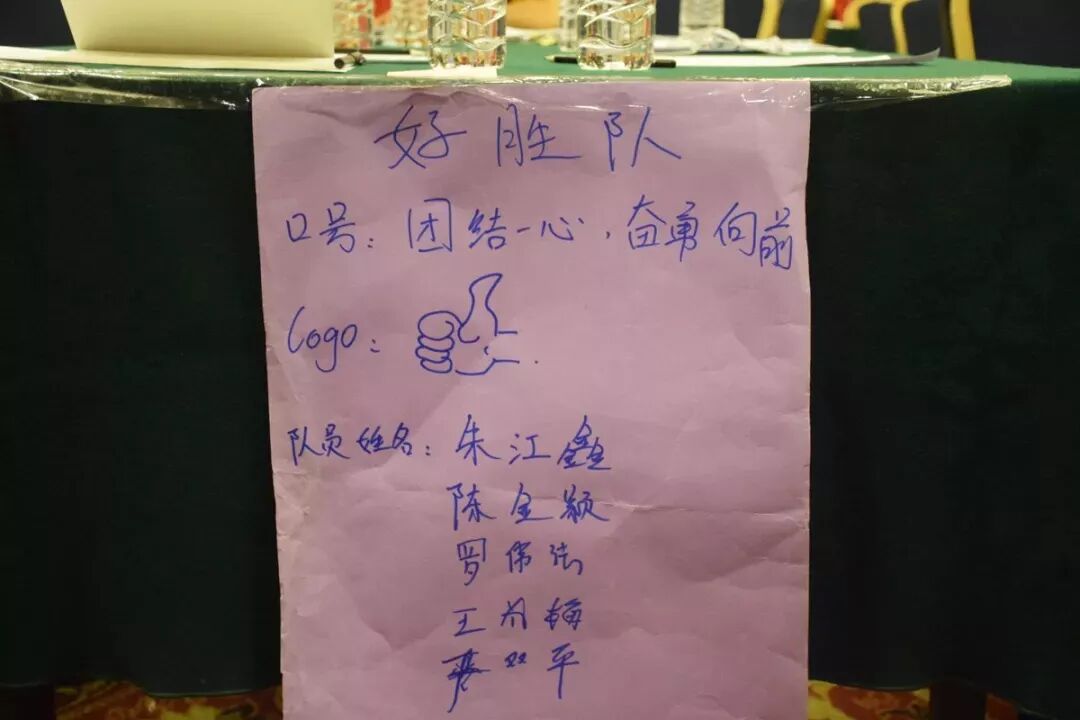 好胜队
口号：团结一心，奋勇向前
logo：
队员姓名：朱江鑫
陈金颖
罗伟
王 梅
双平